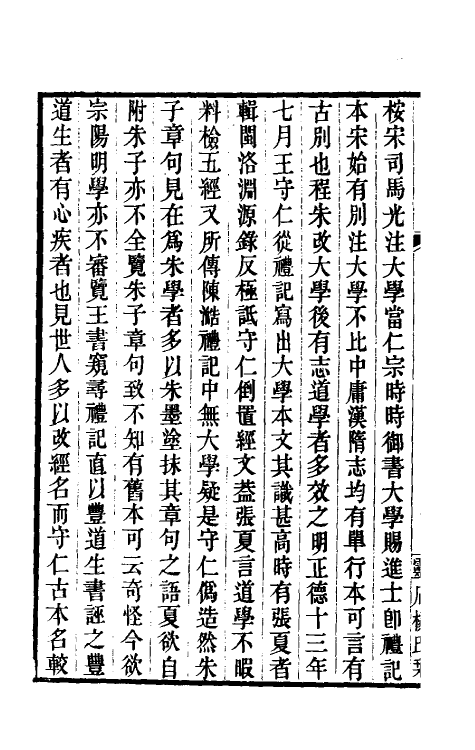 桉宋司馬光注大學當仁宗時時御書大學賜進士卽禮記
本宋始有別注大學不比中庸漢隋志均有單行本可言有
古別也程朱改大學後有志道學者多效之明正德十三年
七月王守仁從禮記寫出大學本文其識甚高時有張夏者
輯閩洛淵源錄反極詆守仁倒置經文葢張夏言道學不暇
料檢五經又所傳陳澔禮記中無大學疑是守仁僞造然朱
子章句見在爲朱學者多以朱墨塗抹其章句之語夏欲自
附朱子亦不全覽朱子章句致不知有舊本可云奇怪今欲
崇陽明學亦不審覽王書窺尋禮記直以豐道生書誣之豐
道生者有心疾者也見世人多以改經名而守仁古本名較